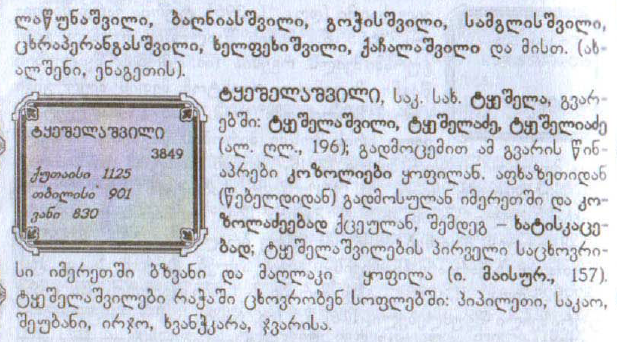 ლაწუნაშვილი, ბაღნიასშვილი, გოჭისშვილი, სამგლისშვილი,
ცხრაპერანგასშვილი, ხელფეხიშვილი, ქაჩალაშვილი და მისთ. (ახ-
ალშენი, ენაგეთის).
ტყეშელაშვილი
3849
ქუთაისი 1125
თბილისი 901
ვანი 830
ტყეშელაშვილი, საკ. სახ. ტყეშელა, გვარ-
ებში: ტყეშელაშვილი, ტყეშელაძე, ტყეშელიაძე
(ალ. ღლ., 196); გადმოცემით ამ გვარის წინ-
აპრები კოზოლიები ყოფილან. აფხაზეთიდან
(წებელდიდან) გადმოსულან იმერეთში და კო-
ზოლაძეებად ქცეულან, შემდეგ – ხატისკაცე-
ბად; ტყეშელაშვილების პირველი საცხოვრი-
სი იმერეთში ბზვანი და მაღლაკი ყოფილა (ი. მაისურ., 157).
ტყეშელაშვილები რაჭაში ცხოვრობენ სოფლებში: პიპილეთი, საკაო,
შეუბანი, ირჯო, ხვანჭკარა, ჯვარისა.